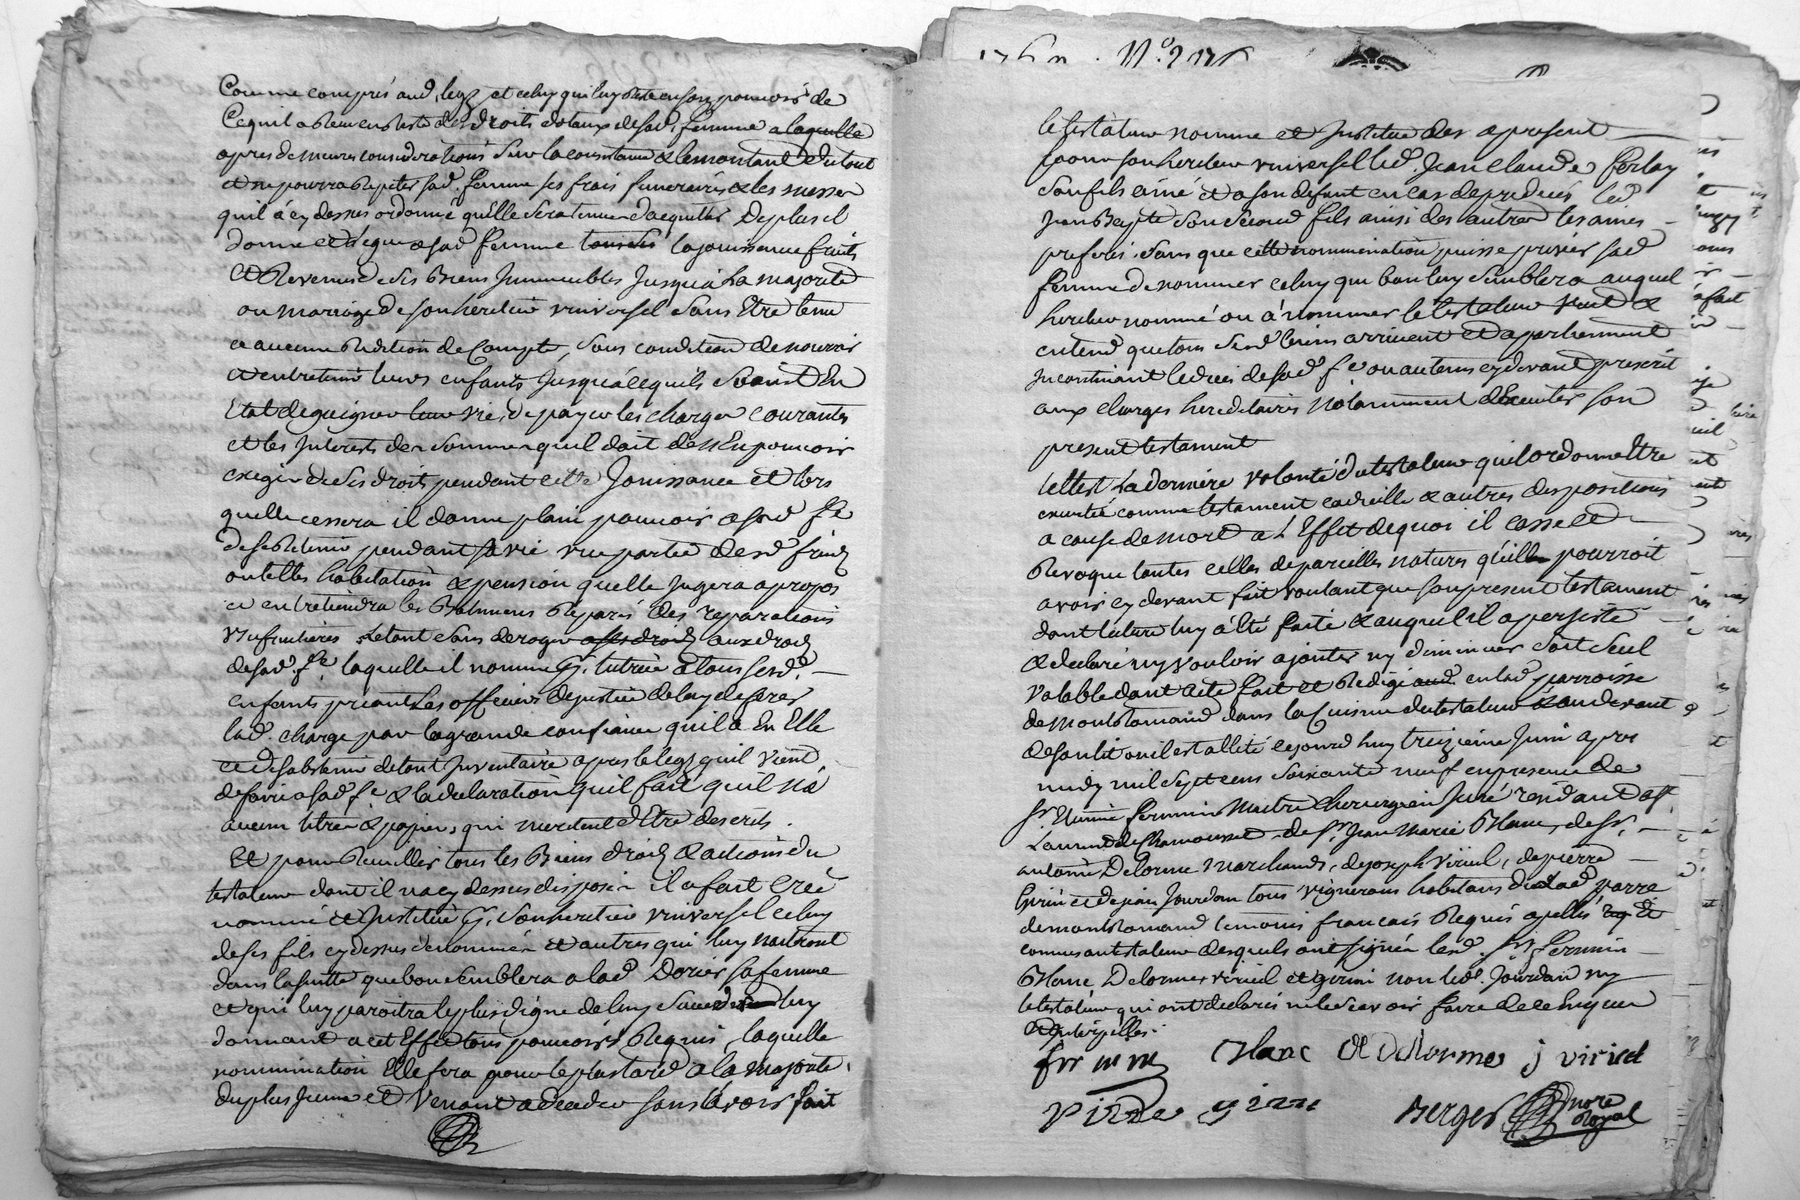 Comme compris aud. legz et celuy qui luy
Ce quil a des droits dotaux de sad. femme a laquelle
apres de meures considerations sur la consistance & le montant du tout
et ne pourra repeter sad. femme ses frais funeraires & les messes
quil a cy dessus ordonné qu'elle sera tenue d'acquitter De plus il
donne et legue a sad. femme la jouissance fruits
et Revenus de ses Biens Immeubles Jusqu'à La majorité
ou mariage de son heritier vniversel sans Etre tenue
a aucune Redition de Compte, sous condition de nourrir
et entretenir leurs enfants Jusqu'à ce quils soient En
Etat de gaigner leur vie, de payer les charges courantes
et les Interests des sommes quil doit
exiger de ses droits pendant cette Jouissance et lors
quelle cessera il donne plain pouvoir a sad. fe
de se Retenir pendant sa vie vne partie de sesd. fonds
ou telles habitation & pension quelle Jugera a propos
et entretiendra les Batimens Reparés des reparations
Vsufruitieres Le tout sans deroger aux droits
de sad. fe. laquelle il nomme tutrice a tous sesd.
enfants priant Les officiers de justice de luy deferer
lad. charge par la grande confiance quil a En Elle
et de s'abstenir de tout Inventaire apres le legz quil vient
de faire a sad. fe & la declaration quil fait quil n'a
aucun titres & papiers qui meritent d'Etre descrits.
Et pour Recueillir tous les Biens droits & actions du
testateur dont il n'a cy dessus disposé il a fait Créé
nommé et Institué son heritier vniversel celuy
de ses fils cy dessus denommés et autres qui luy naitront
dans la suitte que bon semblera a lad. Dorier sa femme
et qui luy paroitra le plus digne de luy succeder luy
donnant a cet Effet tous pouvoirs Requis laquelle
nommination Elle fera pour le plus tard a la majorité
du plus Jeune et Venant a deceder sans l'avoir fait
1769. N.° 2
le testateur nomme et Institue des a present
pour son heritier vniversel led. Jean Claude Ferlay
son fils ainé et a son defaut en cas de predeces led.
Jean Bapte son second fils ainsi des autres les ainés
preferés. sans que cette nommination puisse priver sad.
femme de nommer celuy qui bon luy semblera auquel
heritier nommé ou à nommer le testateur veut &
entend que tous sesd. biens arrivent et apartiennent
Incontinant le deces de sad. fe ou au tems cy devant prescrit
aux charges hereditaires notamment d'executer son
present testament
telle est La derniere volonté du testateur quil ordonne Etre
executée comme testament codicille & autres dispositions
a cause de mort a L'Effet de quoi il casse et
Revoque toutes celles de pareilles natures qu'il pourroit
avoir cy devant fait voulant que son present testament
dont lecture luy a été faite & auquel il a persisté
& declaré n'y vouloir ajouter ny diminuer soit seul
valable dont acte fait et Redigé en lad. parroisse
de Montromand dans la Cuisine du testateur & au devant
de son lit ou il est allité cejourd'huy treizieme Juin apres
midy mil sept cens soixante neuf en presence de
sr. Etienne Fermin Maitre Chirurgien Juré residant a st.
Laurent de Chamousset de sr. Jean Marie Blanc, de sr.
antoine Delorme marchands, de joseph Viricel, de pierre
Girin et de jean Jourdan tous vignerons habitans de lad. parre
de montromand temoins francais Requis apellés
connus au testateur desquels ont signé lesd. srs fermin
Blanc Delorme viricel et girin non led. Jourdan ny
le testateur qui ont declarés ne le scavoir faire de ce enquis
& interpellés.
fermin Blanc Delorme j viricel
pierre girin Berger nore Royal